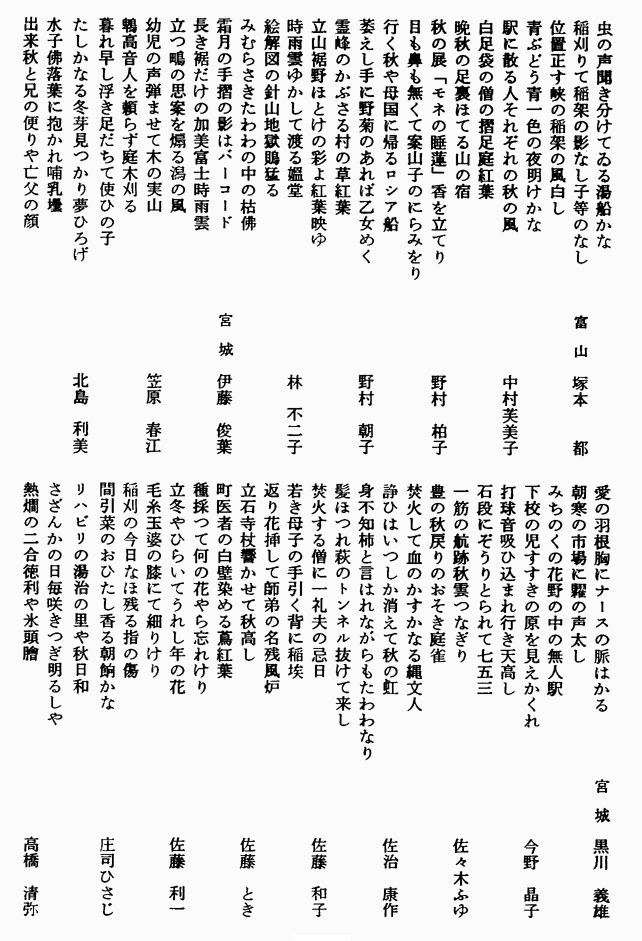 虫の声聞き分けてゐる湯船かな
稲刈りて稲架の影なし子等のなし
位置正す峡の稲架の風白し 富山 塚本 都
青ぶどう青一色の夜明けかな
駅に散る人それぞれの秋の風
白足袋の僧の摺足庭紅葉 中村芙美子
晩秋の足裏ほてる山の宿
秋の展「モネの睡蓮」香を立てり
目も鼻も無くて案山子のにらみをり 野村 柏子
行く秋や母国に帰るロシア船
萎えし手に野菊のあれば乙女めく
霊峰のかぶさる村の草紅葉 野村 朝子
立山裾野ほとけの彩よ紅葉映ゆ
時雨雲ゆかして渡る媼堂
絵解図の針山地獄鵙猛る 林 不二子
みむらさきたわわの中の枯佛
霜月の手摺の影はバーコード
長き裾だけの加美富士時雨雲 宮城 伊藤 俊葉
立つ鴫の思案を煽る潟の風
幼児の声弾ませて木の実山
鵯高音人を頼らず庭木刈る 笠原 春江
暮れ早し浮き足だちて使ひの子
たしかなる冬芽見つかり夢ひろげ
水子佛落葉に抱かれ哺乳壜 北島 利美
出来秋と兄の便りや亡父の顔
愛の羽根胸にナースの脈はかる
朝寒の市場に糶の声太し
みちのくの花野の中の無人駅 宮城 黒川 義雄
下校の児すすきの原を見えかくれ
打球音吸ひ込まれ行き天高し
石段にぞうりとられて七五三 今野 晶子
一筋の航跡秋雲つなぎり
豊の秋戻りのおそき庭雀
焚火して血のかすかなる縄文人 佐々木ふゆ
諍ひはいつしか消えて秋の虹
身不知柿と言はれながらもたわわなり
髪ほつれ萩のトンネル抜けて来し 佐治 康作
焚火する僧に一礼夫の忌日
若き母子の手引く背に稲埃
返り花挿して師弟の名残風炉 佐藤 和子
立石寺杖響かせて秋高し
町医者の白壁染める蔦紅葉
種採つて何の花やら忘れけり 佐藤 とき
立冬やひらいてうれし年の花
毛糸玉婆の膝にて細りけり
稲刈の今日なほ残る指の傷 佐藤 利一
間引菜のおひたし香る朝餉かな
リハビリの湯治の里や秋日和
さざんかの日毎咲きつぎ明るしや 庄司ひさじ
熱燗の二合徳利や氷頭膾 高橋 清弥